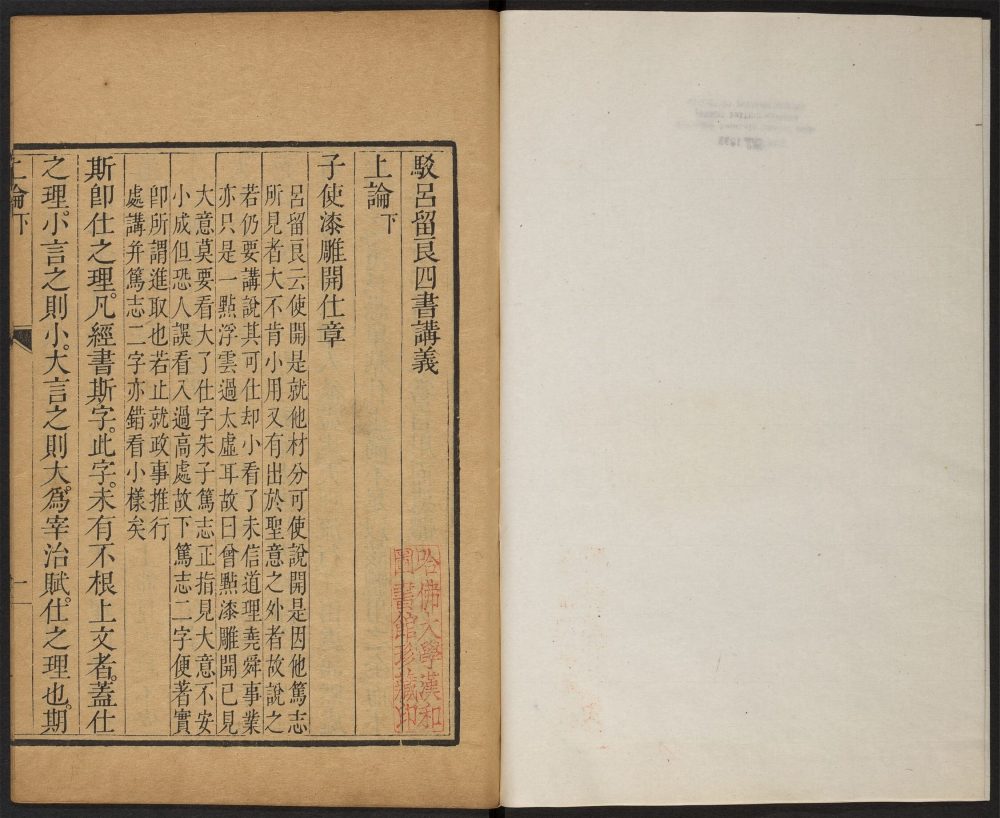 駁呂留良四書講義
上論下
子使漆雕開仕章
呂留良云使開是就他材分可使說開是因他篤志
所見者大不肯小用又有出於聖意之外者故說之
若仍要講說其可仕却小看了未信道理堯舜事業
亦只是一點浮雲過太虛耳故曰曾點漆雕開已見
大意莫要看大了仕字朱子篤志正指見大意不安
小成但恐人誤看入過高處故下篤志二字便著實
卽所謂進取也若止就政事推行
處講幷篤志二字亦錯看小樣矣
斯卽仕之理。凡經書斯字。此字。未有不根上文者。蓋仕
之理。小言之則小。大言之則大。爲宰治賦。仕之理也。期
上論下
一
哈佛大學漢和
圖書館珍藏印